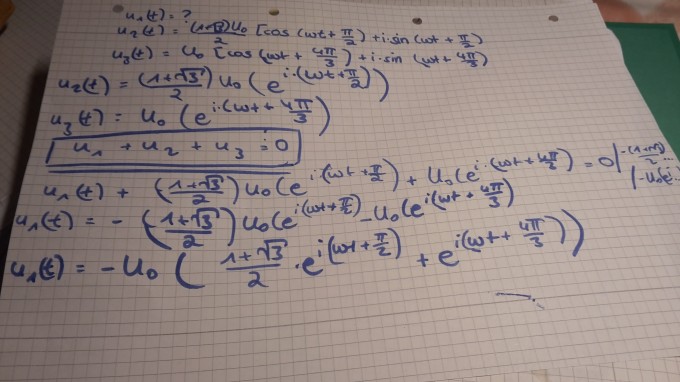 u₁(t) = ?
u₂(t) = (1+√3)U₀/2 [cos (ωt + π/2) + i·sin (ωt + π/2)
u₃(t) = U₀ [cos (ωt + 4π/3) + i·sin (ωt + 4π/3)
u₂(t) = ((1+√3)/2) U₀ (e^(i·(ωt+π/2)))
u₃(t) = U₀ (e^(i·(ωt + 4π/3))
u₁ + u₂ + u₃ = 0
u₁(t) + ((1+√3)/2) U₀ (e^(i·(ωt + π/2)) + U₀ (e^(i·(ωt + 4π/3)) = 0 | -(1+√3)/2 ...
| -U₀(e^i...
u₁(t) = - ((1+√3)/2) U₀ (e^(i(ωt + π/2)) - U₀ (e^(i(ωt + 4π/3))
u₁(t) = -U₀ ( (1+√3)/2 · e^(i(ωt + π/2)) + e^(i(ωt + 4π/3)) )